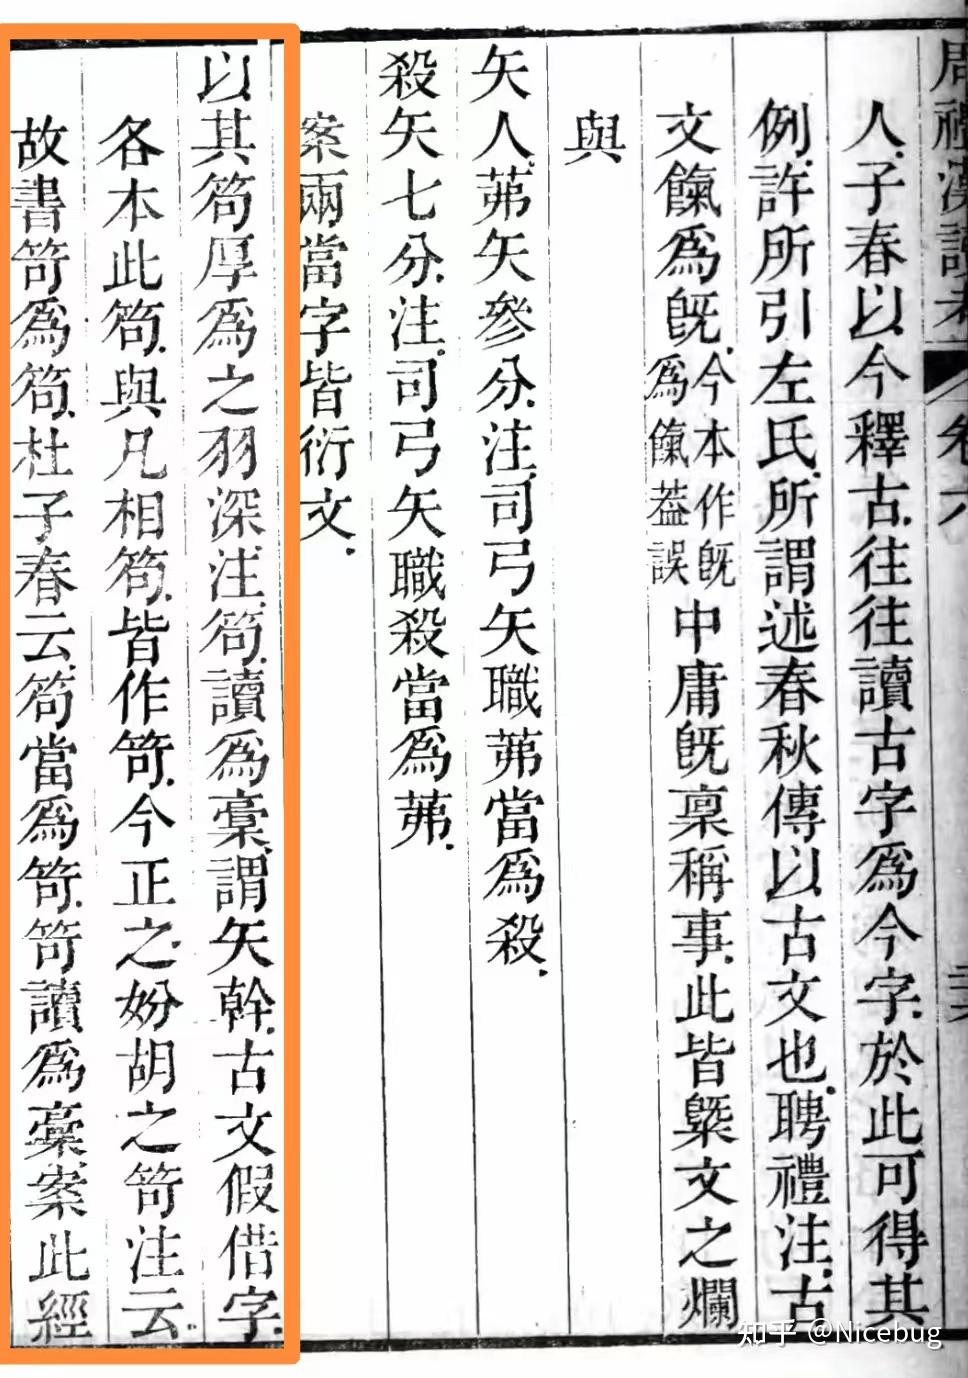 周禮漢讀考 卷六
人.子春以今釋古.往往讀古字爲今字.於此可得其
例.許所引左氏.所謂述春秋傳以古文也.聘禮注.古
文餼爲旣.今本作旣爲餼葢誤中庸旣稟稱事.此皆槩文之爛
與
矢人.茀矢參分.注.司弓矢職茀當爲殺.
殺矢七分.注.司弓矢職殺當爲茀.
案兩當字皆衍文.
以其笱厚爲之羽深.注.笱讀爲槀.謂矢幹.古文假借字.
各本此笱.與凡相笱.皆作笴.今正之.妢胡之笴注云.
故書笴爲笱.杜子春云.笱當爲笴.笴讀爲槀.案此經
知乎 @Nicebug